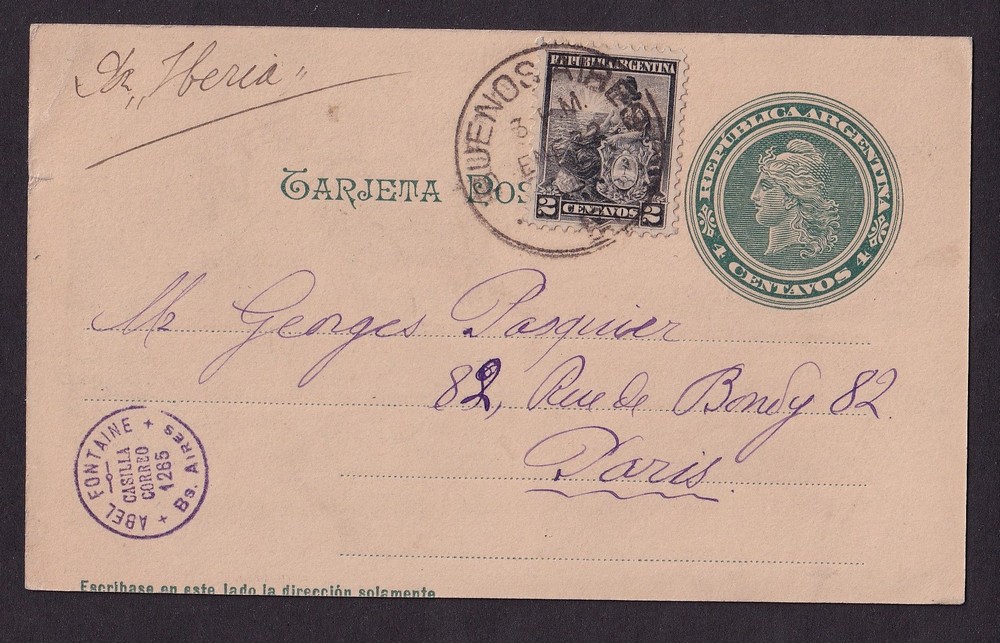 "Iberia"
REPUBLICA ARGENTINA
2 CENTAVOS 2
BUENOS AIRES
REPÚBLICA ARGENTINA
4 CENTAVOS 4
TARJETA POS
Mr Georges Pasquier
82, Rue de Bondy 82
Paris
ABEL FONTAINE + Bs. AIRES +
CASILLA
CORREO
1265
Escríbase en este lado la dirección solamente